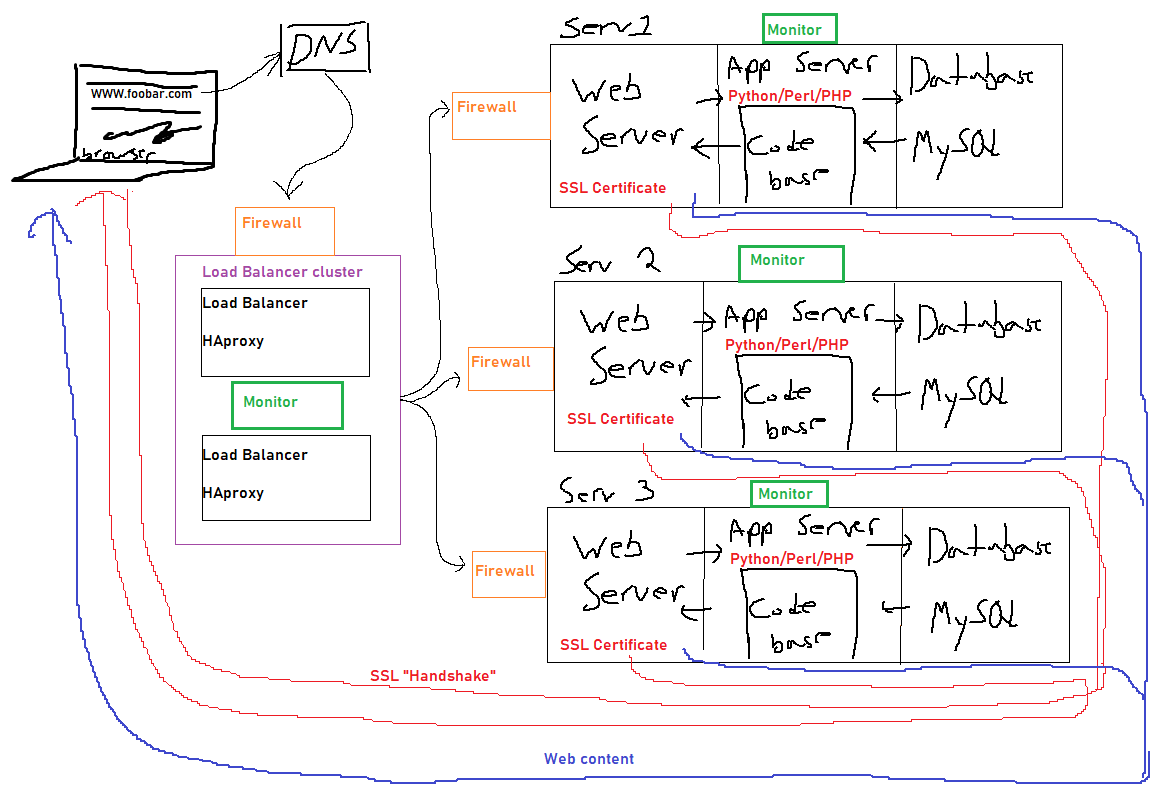 DNS
www.foobar.com
browser
Firewall
Load Balancer cluster
Load Balancer
HAproxy
Monitor
Load Balancer
HAproxy
Serv1
Monitor
Firewall
Web
Server
SSL Certificate
App Server
Python/Perl/PHP
Code
base
Database
MySQL
Serv 2
Monitor
Firewall
Web
Server
SSL Certificate
App Server
Python/Perl/PHP
Code
base
Database
MySQL
Serv 3
Monitor
Firewall
Web
Server
SSL Certificate
App Server
Python/Perl/PHP
Code
base
Database
MySQL
SSL "Handshake"
Web content